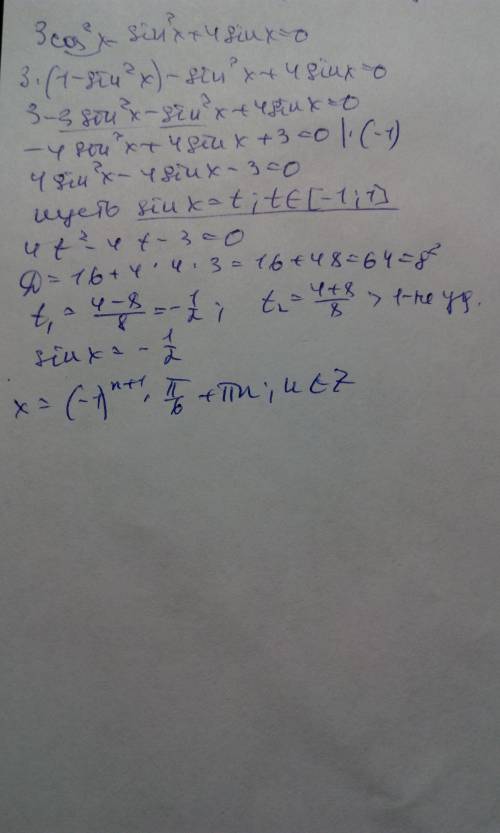 3cos²x - sin²x + 4sinx = 0
3·(1-sin²x) - sin²x + 4sinx = 0
3 - 3sin²x - sin²x + 4sinx = 0
-4sin²x + 4sinx + 3 = 0 |·(-1)
4sin²x - 4sinx - 3 = 0
пусть sinx = t; t∈[-1;1]
4t² - 4t - 3 = 0
D = 16 + 4·4·3 = 16 + 48 = 64 = 8²
t₁ = (4-8)/8 = -1/2; t₂ = (4+8)/8 > 1 - не уд.
sinx = -1/2
x = (-1)ⁿ⁺¹·π/6 + πn; n∈Z